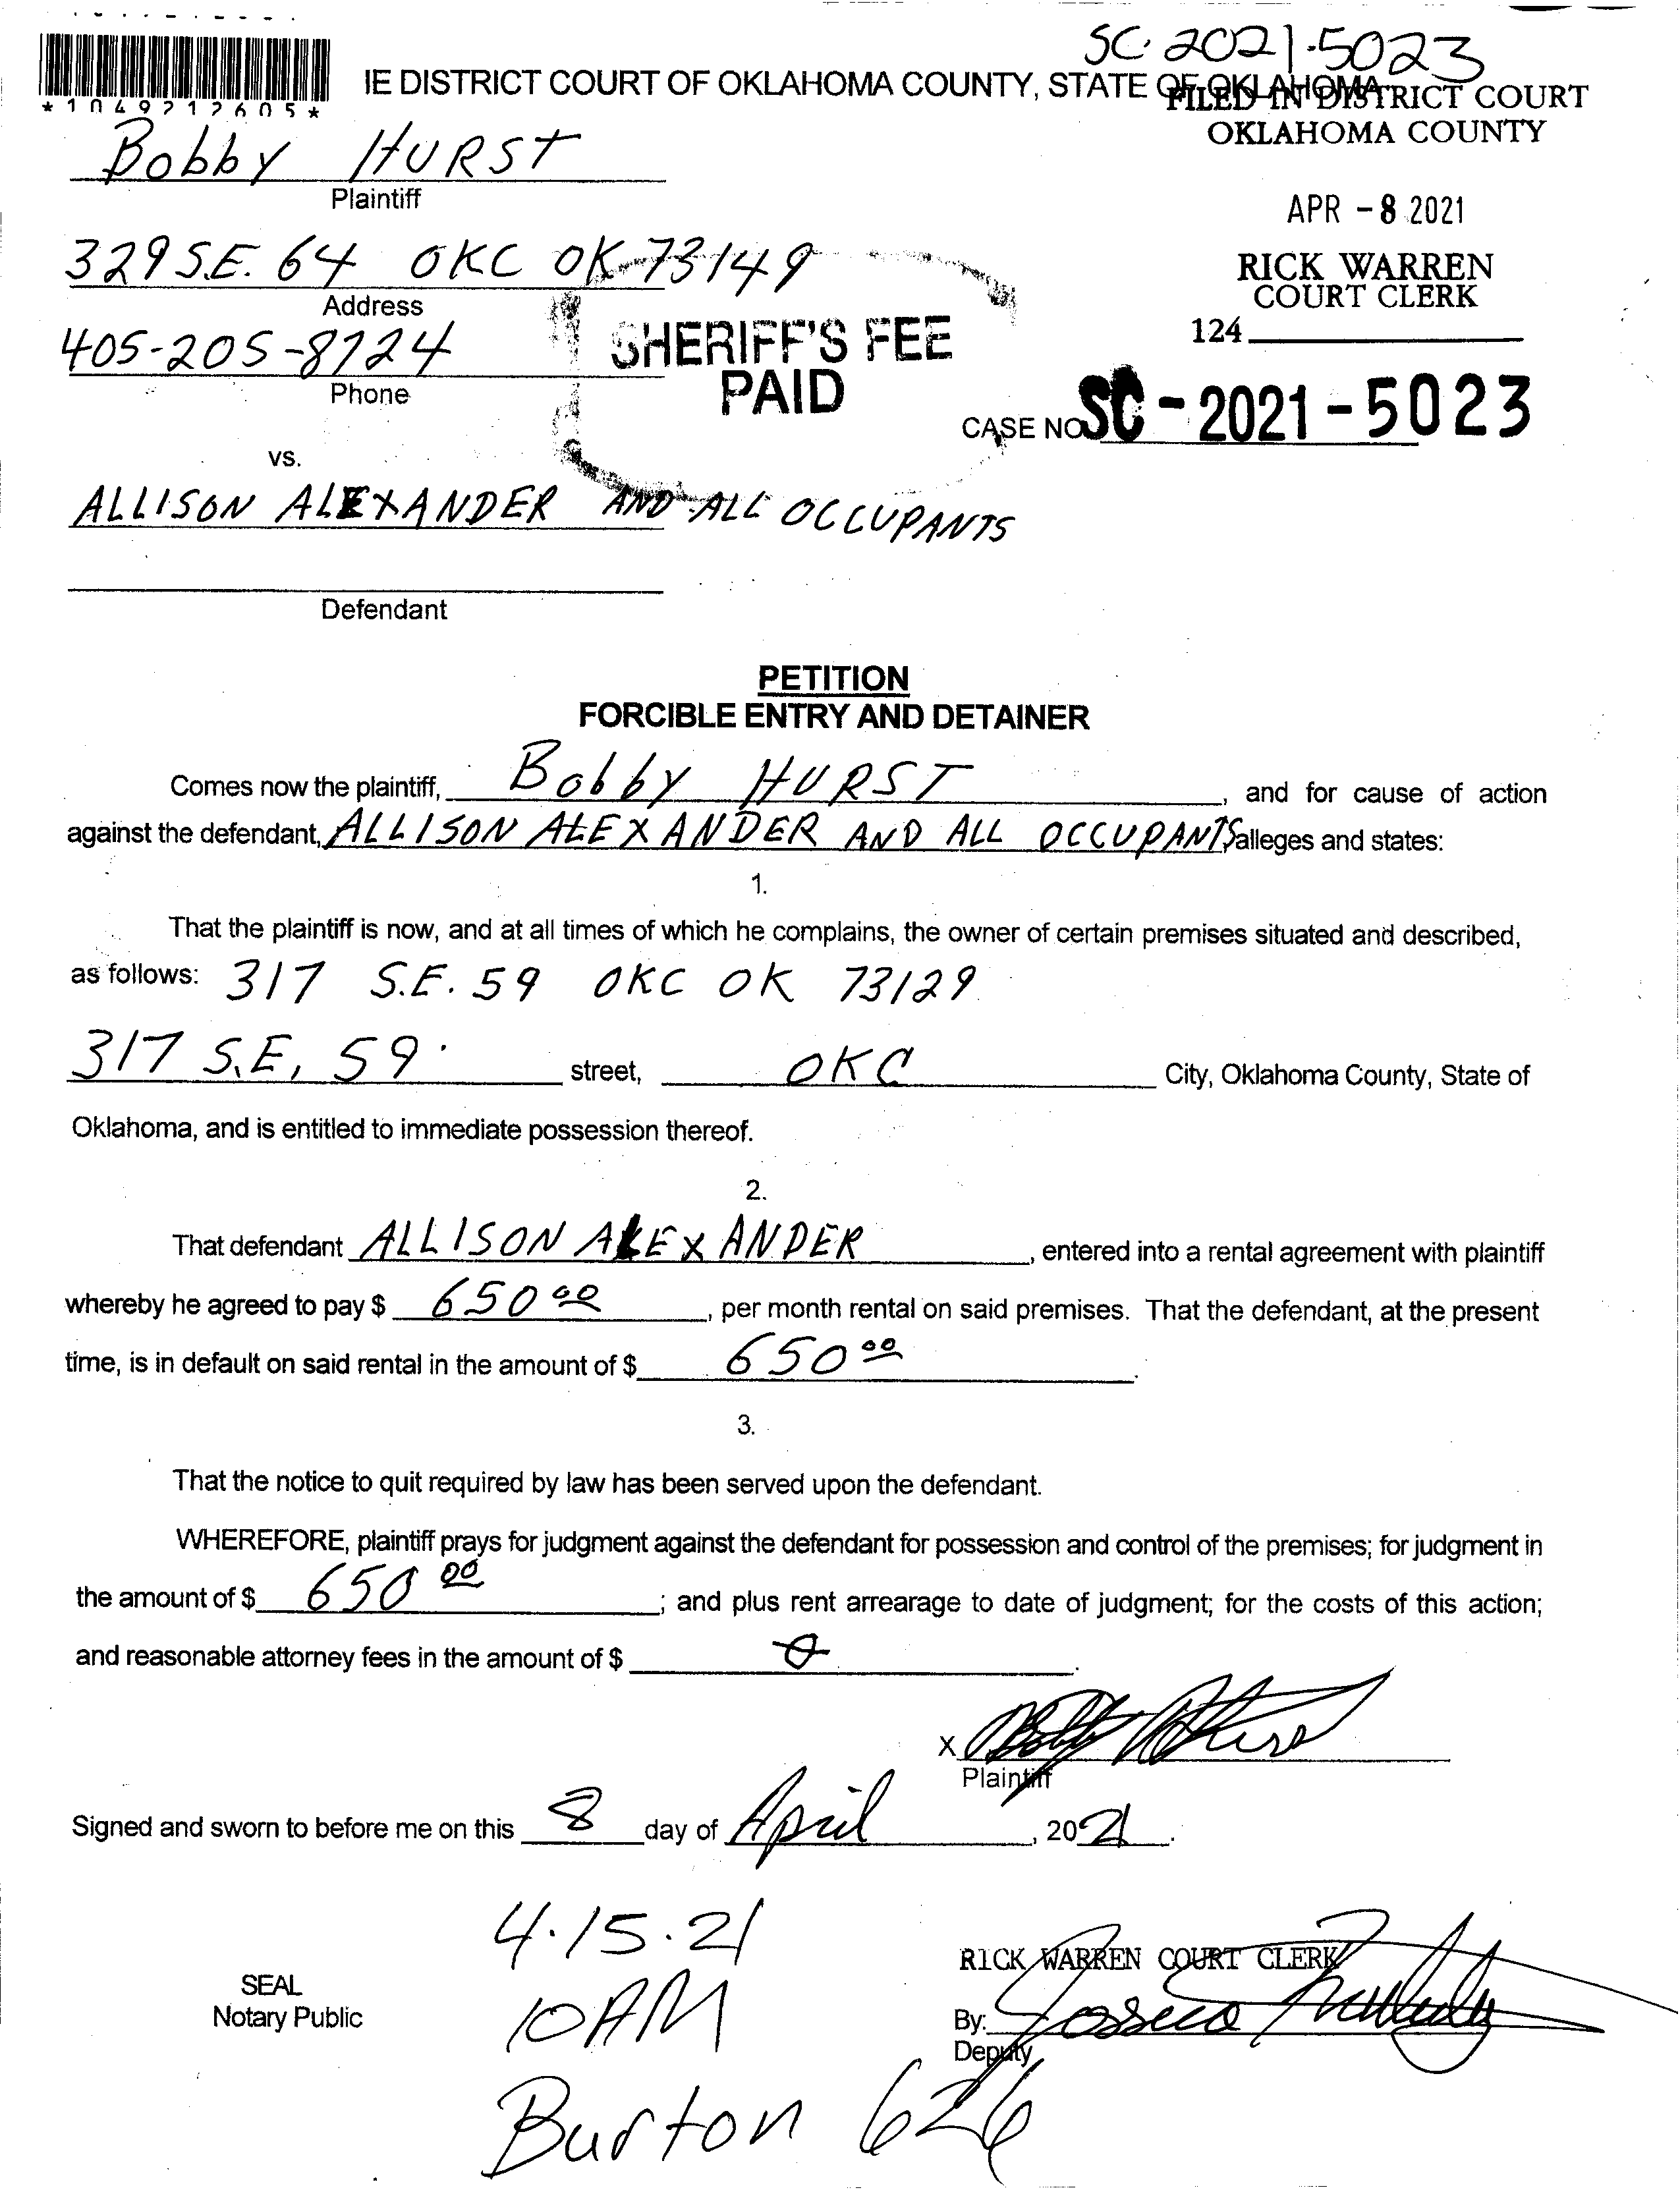 SC-2021-5023
IE DISTRICT COURT OF OKLAHOMA COUNTY, STATE OF OKLAHOMA
FILED IN DISTRICT COURT
OKLAHOMA COUNTY
*1049212605*
Bobby HURST
Plaintiff
APR -8 2021
329 S.E. 64 OKC OK 73149
Address
RICK WARREN
COURT CLERK
405-205-8724
Phone
SHERIFF'S FEE
PAID
124
CASE NO SC-2021-5023
vs.
ALLISON ALEXANDER AND ALL OCCUPANTS
Defendant
PETITION
FORCIBLE ENTRY AND DETAINER
Comes now the plaintiff, Bobby HURST, and for cause of action
against the defendant, ALLISON ALEXANDER AND ALL OCCUPANTS alleges and states:
1.
That the plaintiff is now, and at all times of which he complains, the owner of certain premises situated and described,
as follows: 317 S.E. 59 OKC OK 73129
317 S.E. 59 street, OKC City, Oklahoma County, State of
Oklahoma, and is entitled to immediate possession thereof.
2.
That defendant ALLISON ALEXANDER, entered into a rental agreement with plaintiff
whereby he agreed to pay $ 650 00, per month rental on said premises. That the defendant, at the present
time, is in default on said rental in the amount of $ 650 00.
3.
That the notice to quit required by law has been served upon the defendant.
WHEREFORE, plaintiff prays for judgment against the defendant for possession and control of the premises; for judgment in
the amount of $ 650 00; and plus rent arrearage to date of judgment; for the costs of this action;
and reasonable attorney fees in the amount of $ 0.
X Bobby Hurst
Plaintiff
Signed and sworn to before me on this 8 day of April, 2021.
4.15.21
10AM
Burton 626
SEAL
Notary Public
RICK WARREN COURT CLERK
By:
Deputy